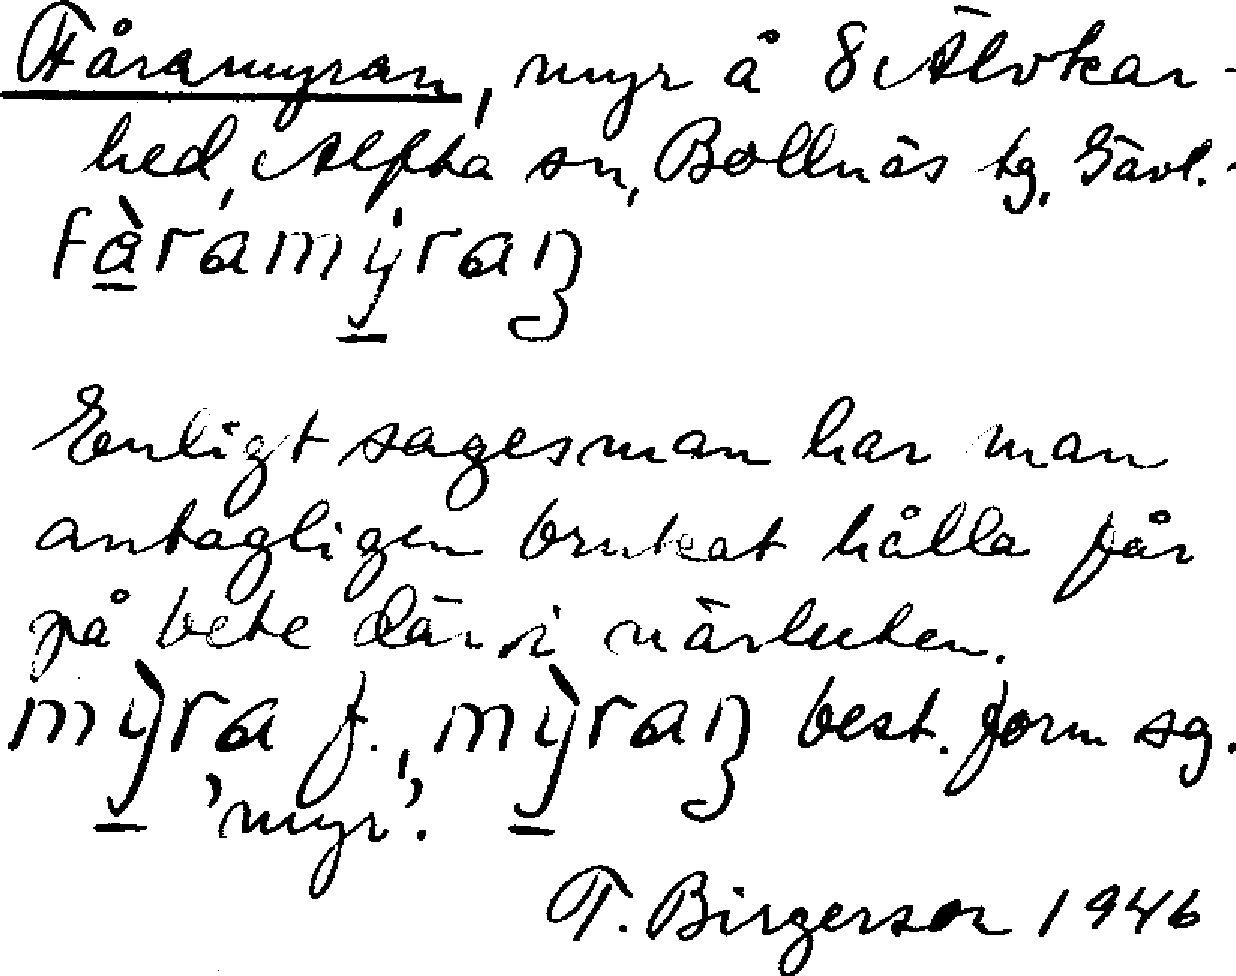 Fåramyran, myr å 8 Älvkar-
hed, Alfta sn, Bollnäs tg, Gävl.
fàramy̠raŋ
Enligt sagesman har man
antagligen brukat hålla får
på bete där i närheten.
mỳra f., mỳraŋ best. form sg.
'myr'.
T. Birgerson 1946